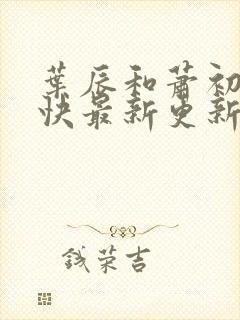 葉辰和蕭初
快最新更新
錢荣吉